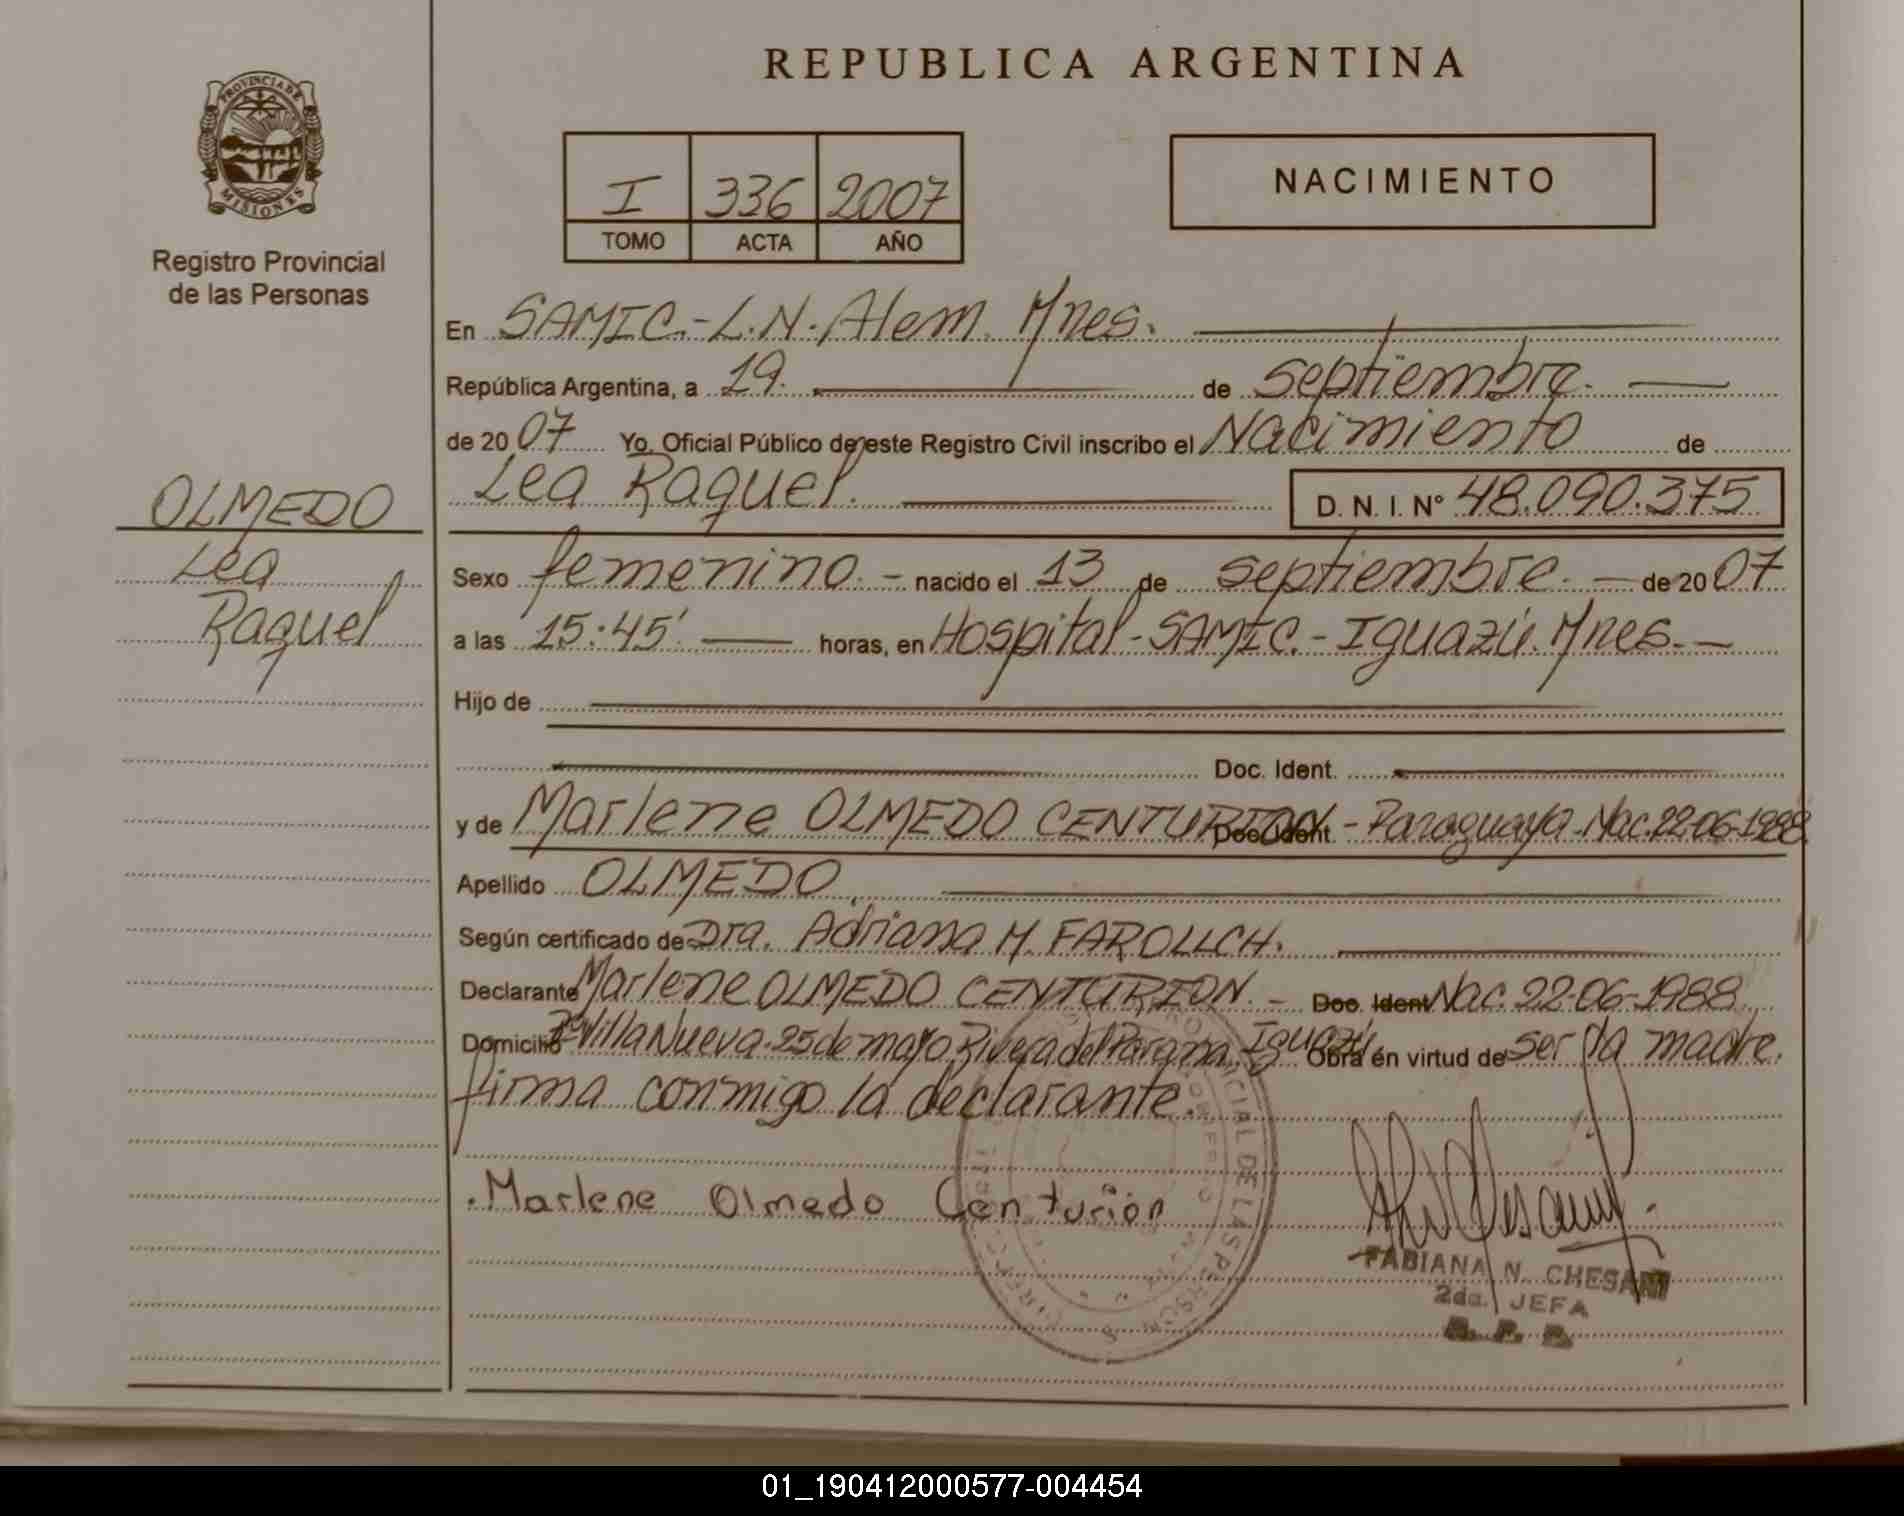 REPUBLICA ARGENTINA
PROVINCIA DE
MISIONES
Registro Provincial
de las Personas
I 336 2007
TOMO ACTA AÑO
NACIMIENTO
En SAMIC.-L.N. Alem. Mnes.
República Argentina, a 19. de septiembre.
de 2007 Yo, Oficial Público de este Registro Civil inscribo el Nacimiento de
Lea Raquel. D. N. I. N° 48.090.375
OLMEDO
Lea
Raquel
Sexo femenino. - nacido el 13 de septiembre. - de 2007
a las 15:45' horas, en Hospital - SAMIC. - Iguazú. Mnes. -
Hijo de
Doc. Ident.
y de Marlene OLMEDO CENTURION Doc. Ident. - Paraguaya. Nac. 22-06-1988
Apellido OLMEDO
Según certificado de Dra. Adriana M. FAROLLCH.
Declarante Marlene OLMEDO CENTURION. - Doc. Ident Nac. 22-06-1988
Domicilio Villa Nueva. 25 de mayo Rivera del Parana. Iguazú Obra en virtud de ser la madre.
firma conmigo la declarante.
.Marlene Olmedo Centurión
FABIANA N. CHESANI
2da. JEFA
R. P. P.
01_190412000577-004454